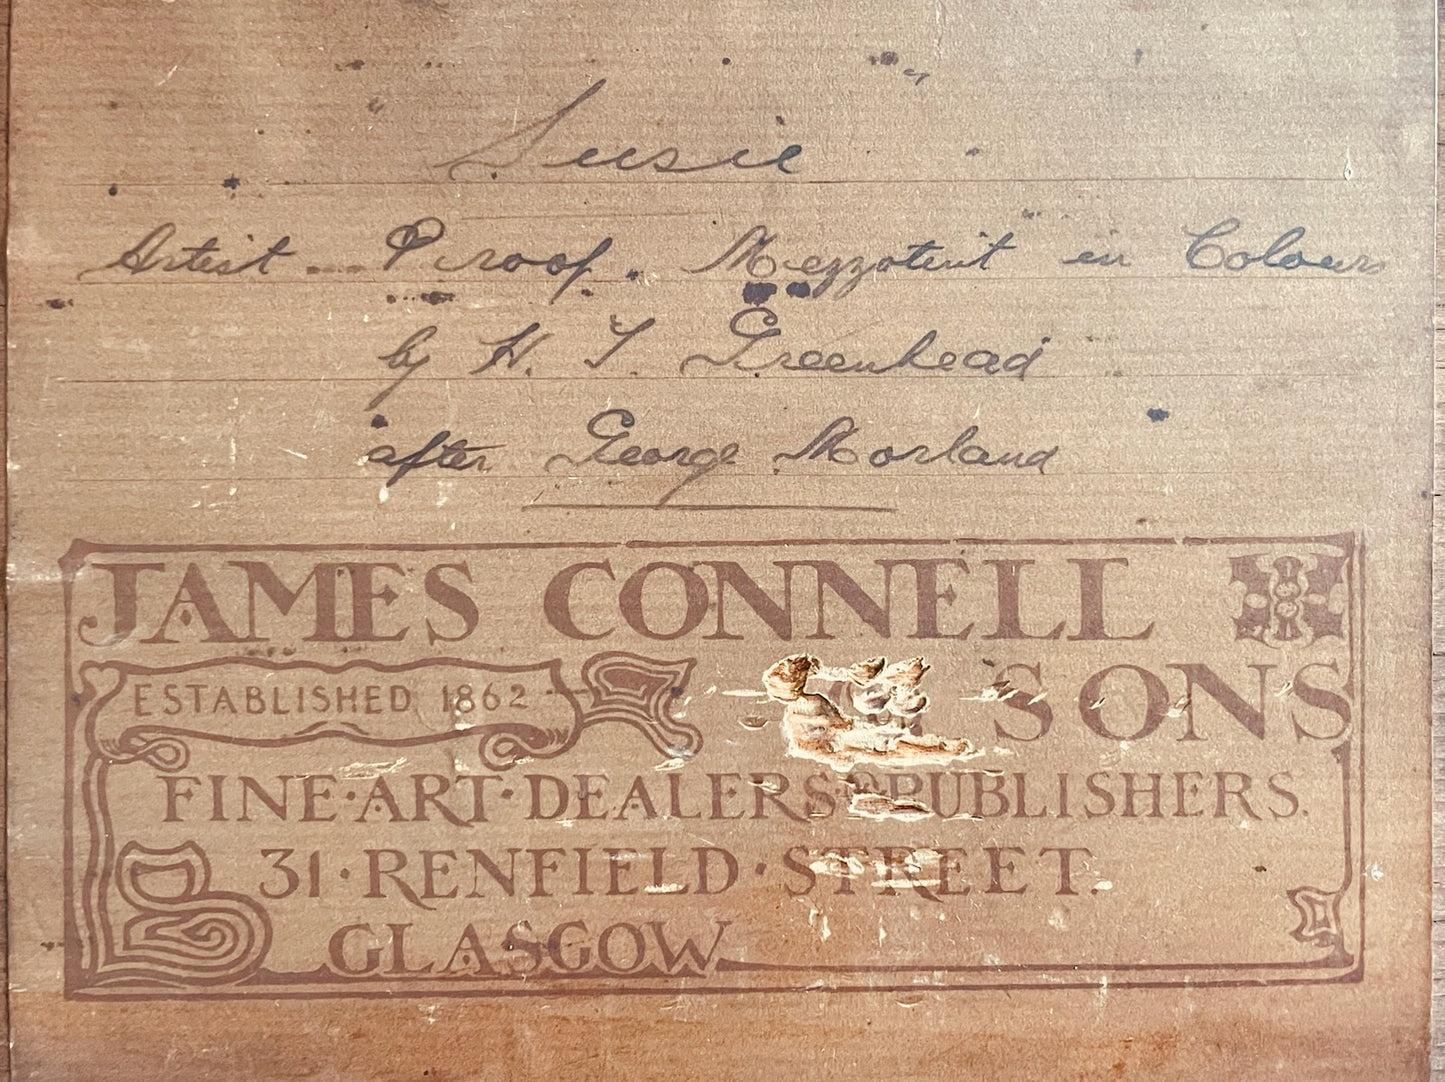 Susie
Artist Proof. Mezzotint in Colours
by H. T. Greenhead
after George Morland
JAMES CONNELL
ESTABLISHED 1862
SONS
FINE·ART·DEALERS & PUBLISHERS.
31·RENFIELD·STREET.
GLASGOW